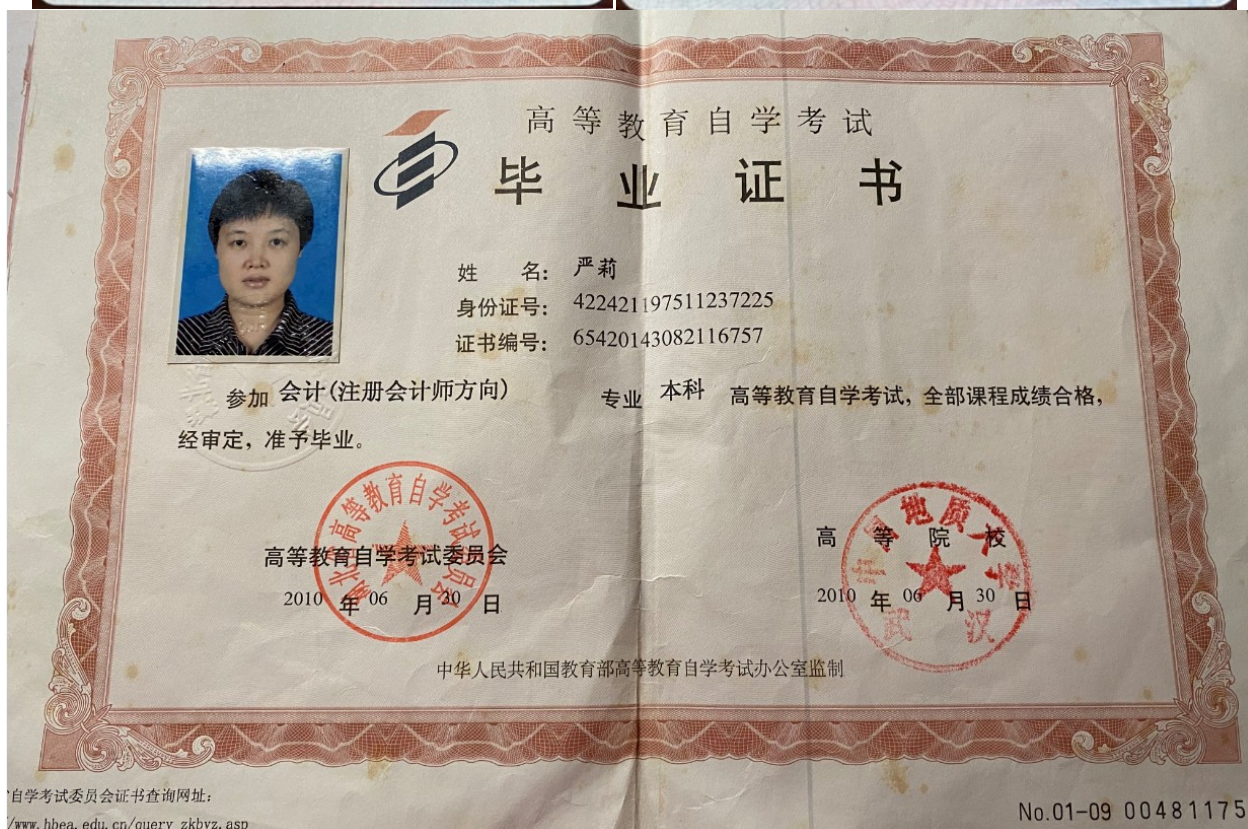 高等教育自学考试
毕业证书
姓 名: 严莉
身份证号: 422421197511237225
证书编号: 65420143082116757
参加 会计(注册会计师方向) 专业 本科 高等教育自学考试, 全部课程成绩合格,
经审定, 准予毕业。
湖北省高等教育自学考试委员会
高等教育自学考试委员会
2010 年 06 月 30 日
中国地质大学
武汉
高等院校
2010 年 06 月 30 日
中华人民共和国教育部高等教育自学考试办公室监制
自学考试委员会证书查询网址:
/www.hbea.edu.cn/query_zkbyz.asp
No.01-09 00481175